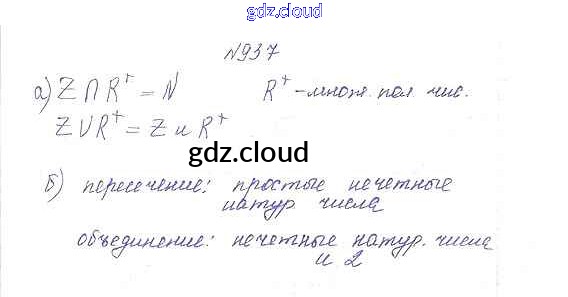 gdz.cloud
N937
а) Z ∩ R⁺ = N    R⁺ - множ. пол. чис.
Z U R⁺ = Z и R⁺
gdz.cloud
б) пересечение: простые нечетные
натур числа
объединение: нечетные натур. числа
и 2